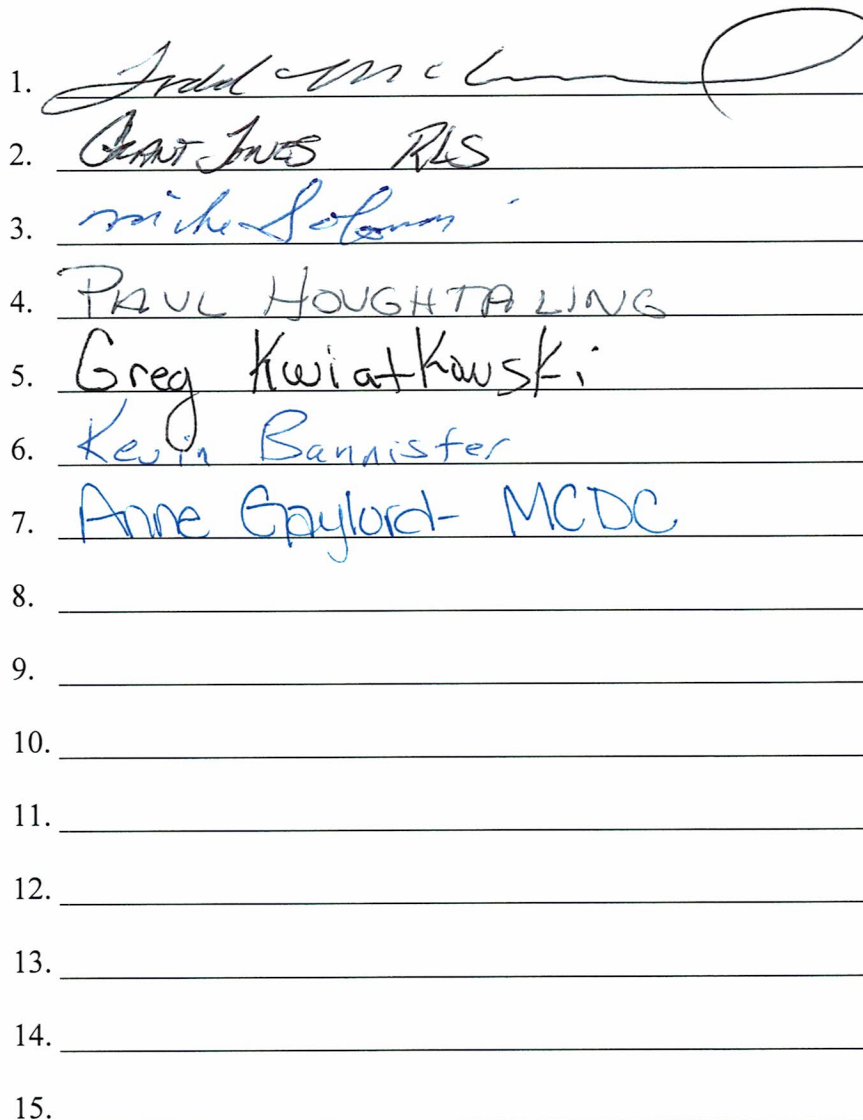 1. Todd
2. Grant Jones RLS
3. mike Solomon
4. PAUL HOUGHTALING
5. Greg Kwiatkowski
6. Kevin Bannister
7. Anne Gaylord- MCDC
8.
9.
10.
11.
12.
13.
14.
15.